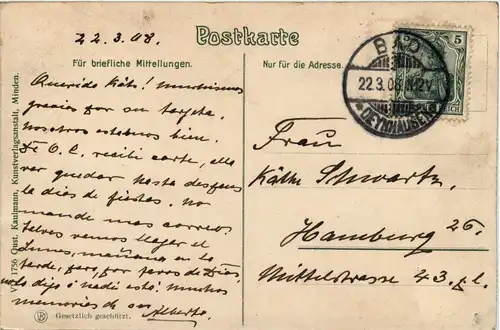 22.3.08.
Postkarte
Für briefliche Mitteilungen.
Nur für die Adresse.
Querida Käte! muchisimas
gracias por su tarjeta.
nosotros estamos bien.
De O.C. recibi carte, ella
va quedar hasta despues
de dias de fiestas. no
mande mas correos
Selvas vamos llegar el
Lunes, mañana en la
tarde, pero, por favor de Dios,
no lo dijo á nadie está! muchos
memorias de su Alberto.
Gesetzlich geschützt.
1756 Gust. Kaulmann, Kunstverlagsanstalt, Minden.
5
BAD
22.3.08
OEYNHAUSEN
Frau
Käthe Schwartz
Hamburg 26.
Mittelstrasse 43.